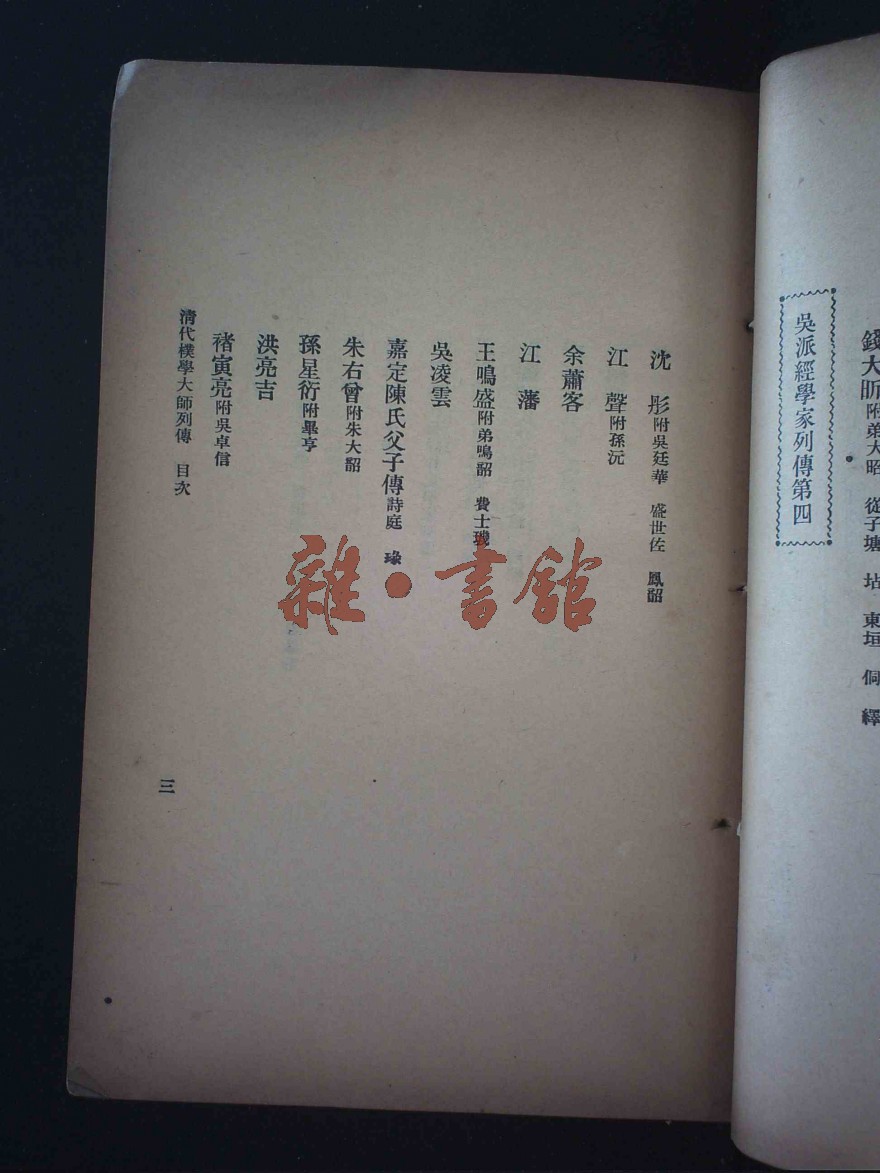 錢大昕附弟大昭 從子塘 坫 東垣 侗 繹
吳派經學家列傳第四
沈 彤附吳廷華 盛世佐 鳳韶
江 聲附孫沅
余蕭客
江 藩
王鳴盛附弟鳴韶 費士璣
吳凌雲
嘉定陳氏父子傳詩庭 瑑
朱右曾附朱大韶
孫星衍附畢亨
洪亮吉
褚寅亮附吳卓信
清代樸學大師列傳 目次
三
雜·書館